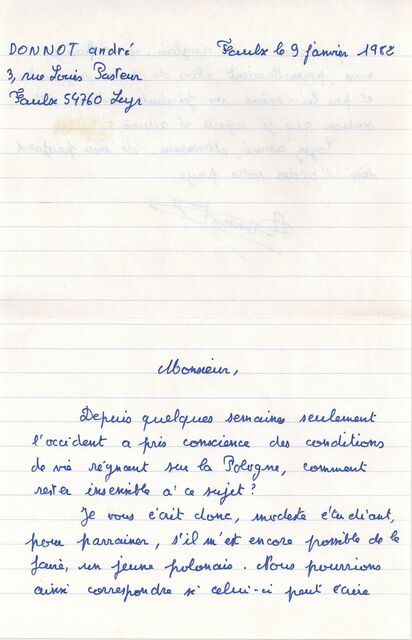 DONNOT andré
Faulx le 9 janvier 1982
3, rue Louis Pasteur
Faulx 54760 Leyr
Monsieur,
Depuis quelques semaines seulement
l'occident a pris conscience des conditions
de vie régnant sur la Pologne, comment
rester insensible à ce sujet ?
Je vous écrit donc, modeste étudiant,
pour parrainer, s'il m'est encore possible de le
faire, un jeune polonais. Nous pourrions
ainsi correspondre si celui-ci peut écrire